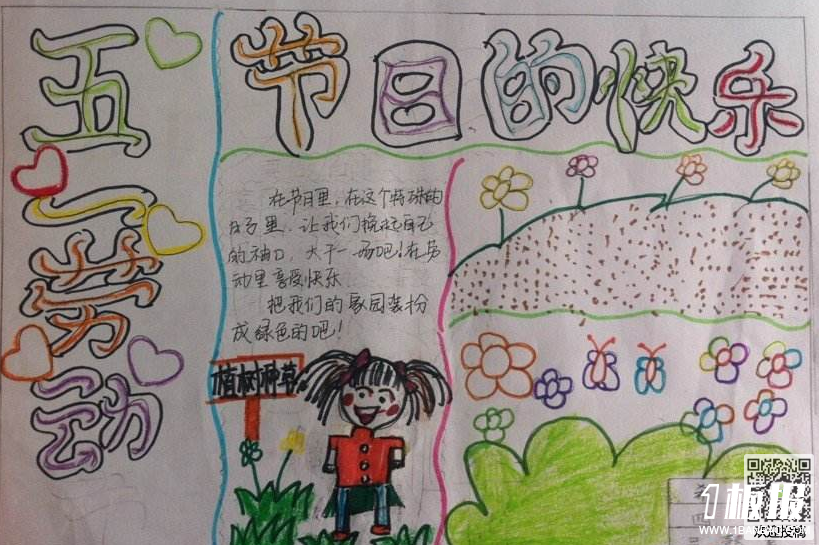 五一劳动
节日的快乐
在节日里,在这个特殊的
日子里,让我们挽起自己
的袖口,大干一场吧!在劳
动里享受快乐
把我们的家园装扮
成绿色的吧!
植树种草
1板报
WWW.1BANBAO.COM
欢迎投稿